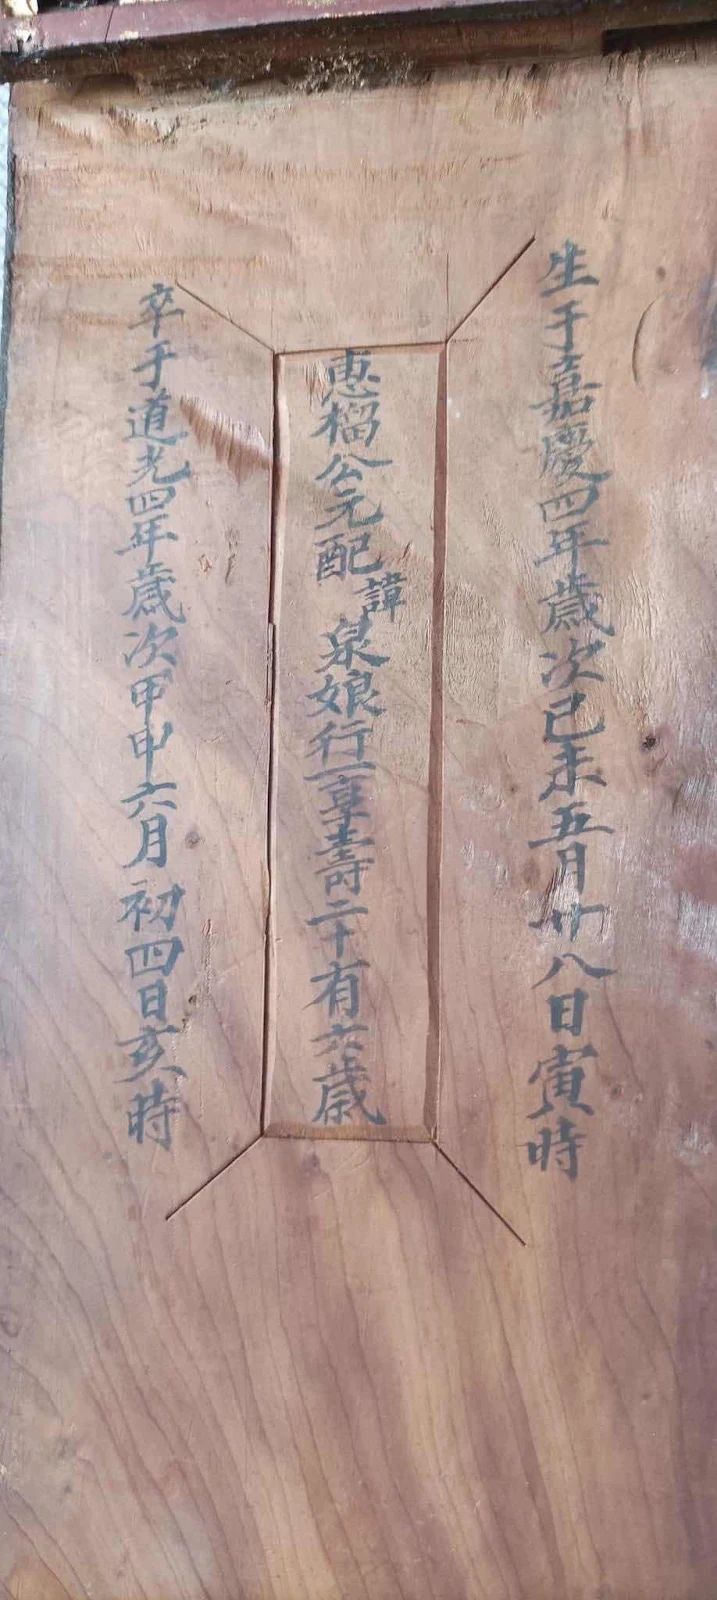 生于嘉慶四年歲次己未五月廿八日寅時
惠榴公元配諱泉娘行一享壽二十有六歲
卒于道光四年歲次甲申六月初四日亥時